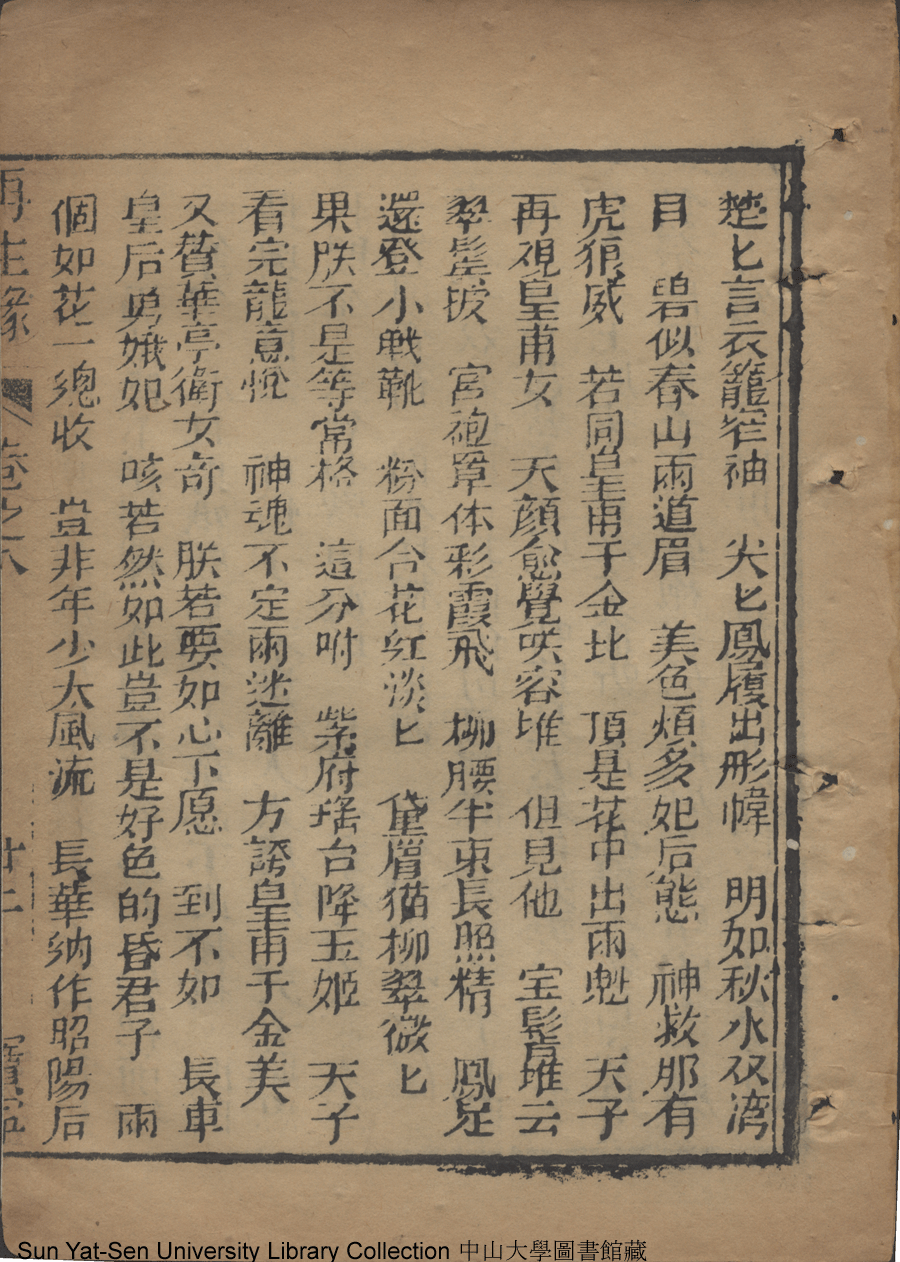 楚匕言衣籠窄袖　尖匕鳳履出形幃　明如秋水双湾
目　碧似春山兩道眉　美色煩多妃后態　神救那有
虎狼威　若同皇甫千金比　頂是花中出兩魁　天子
再視皇甫女　天顔愈覺咲容堆　但見他　宝髻堆云
翠髩披　宮袍罩体彩霞飛　柳腰半束長照精　鳳足
還登小戰靴　粉面台花紅淡匕　黛眉猫柳翠微匕
果朕不是等常格　這分咐　紫府瑤台降玉姬　天子
看完龍意悅　神魂不定兩迷離　方誇皇甫千金美
又賛華亭衛女奇　朕若要如心下愿　到不如　長車
皇后勇娥妃　咳若然如此豈不是好色的昏君子　兩
個如花一總收　豈非年少太風流　長華納作昭陽后
再生緣　卷之八　廿二
Sun Yat-Sen University Library Collection 中山大學圖書館藏